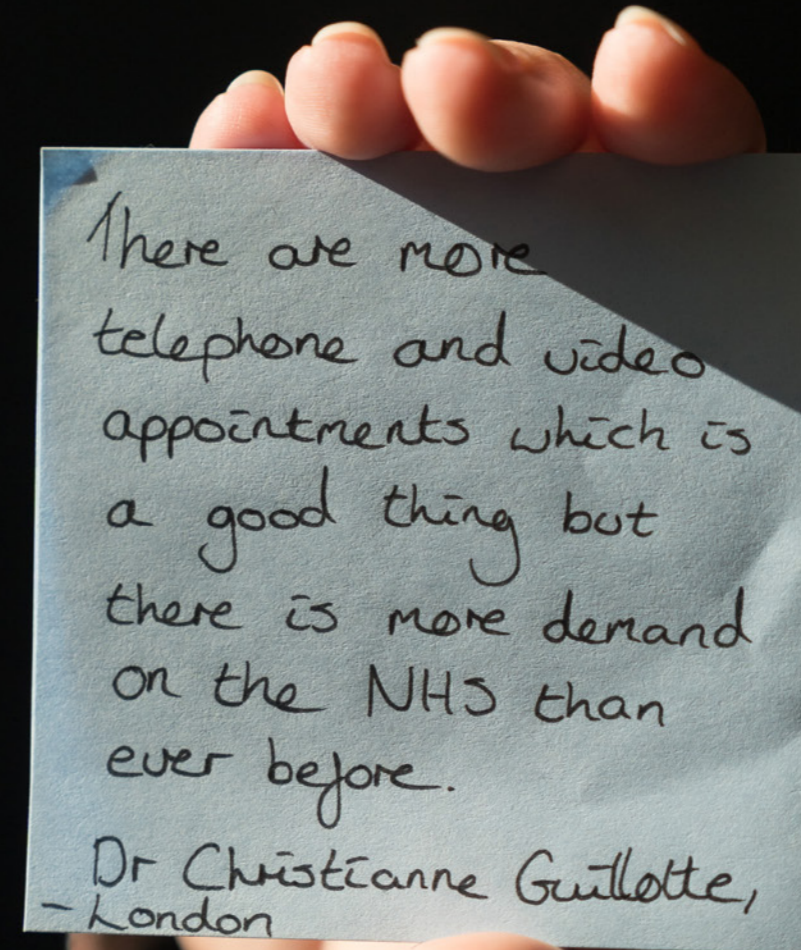 There are more
telephone and video
appointments which is
a good thing but
there is more demand
on the NHS than
ever before.
Dr Christianne Guillotte,
- London